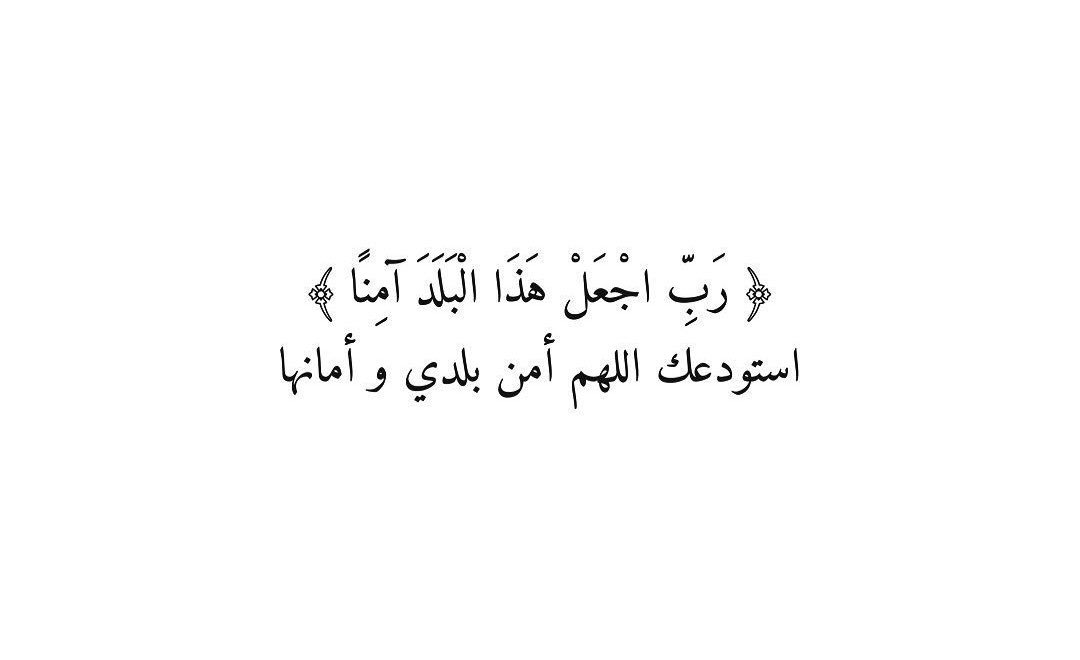 ﴿ رَبِّ اجْعَلْ هَذَا الْبَلَدَ آمِنًا ﴾
استودعك اللهم أمن بلدي و أمانها